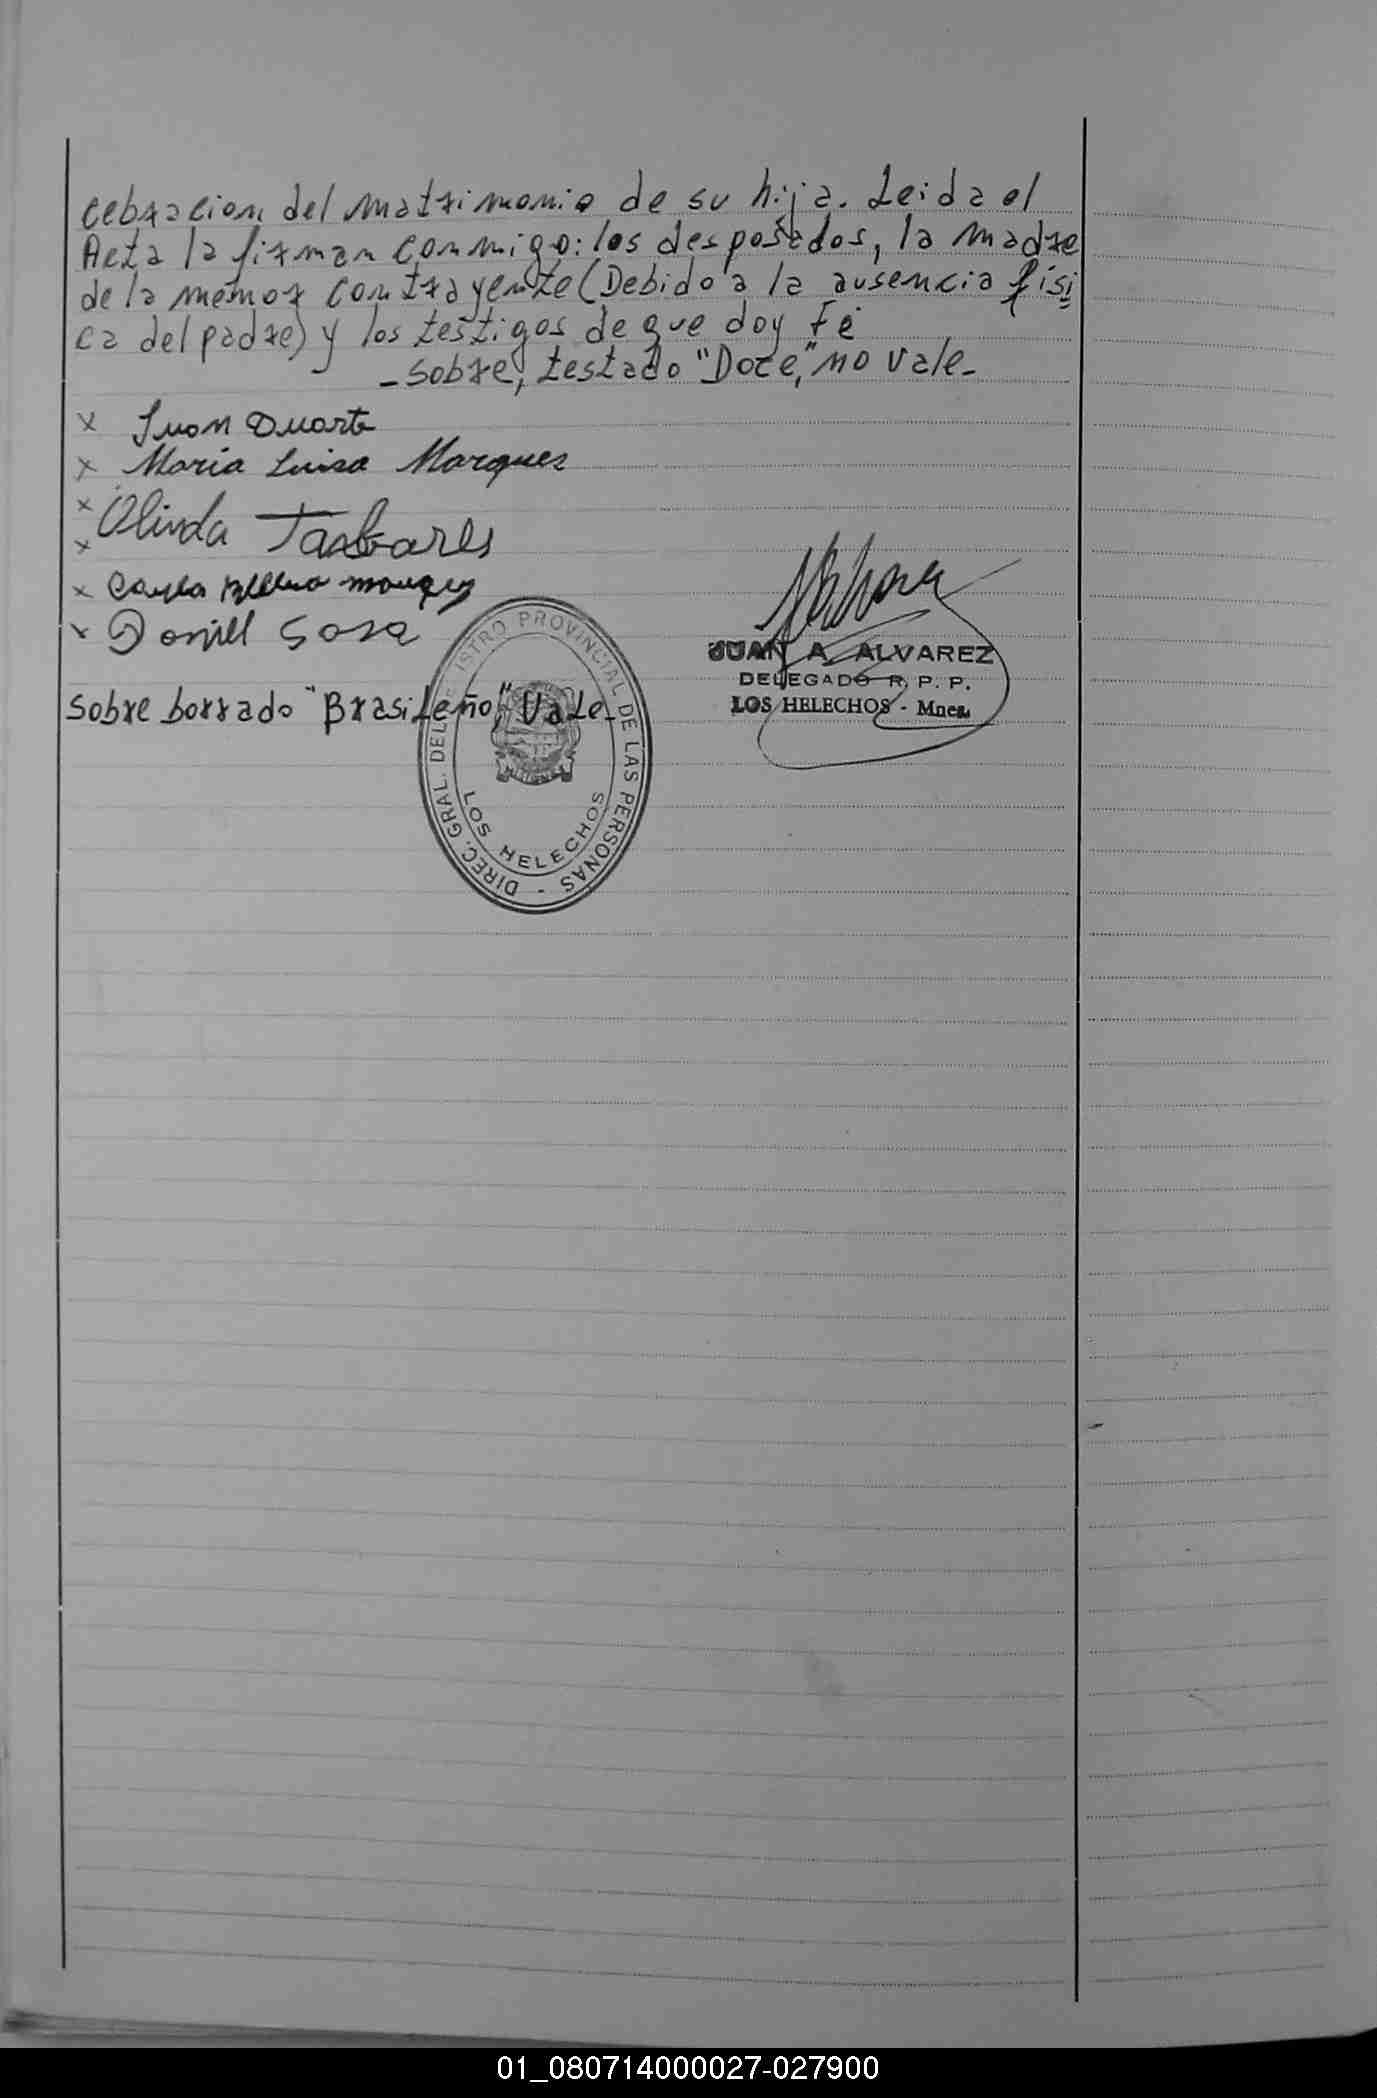 cebracion del matrimonio de su hija. Leida el
Acta la firman conmigo: los desposados, la madre
de la menor contrayente (Debido a la ausencia físi
ca del padre) y los testigos de que doy Fé
- Sobre, testado "Doce," no vale-
x Juan Duarte
x Maria Luisa Marques
x Olinda Tavares
x
x Marques
x Daniel Sosa
JUAN A. ALVAREZ
DELEGADO R. P. P.
LOS HELECHOS - Mnes.
Sobre borrado "Brasileño," Vale-
DIREC. GRAL. DEL REGISTRO PROVINCIAL DE LAS PERSONAS -
LOS HELECHOS
01_080714000027-027900